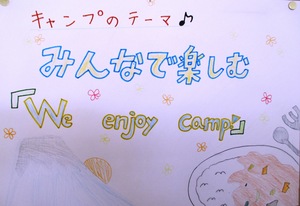 キャンプのテーマ♪
みんなで楽しむ
『We enjoy camp』